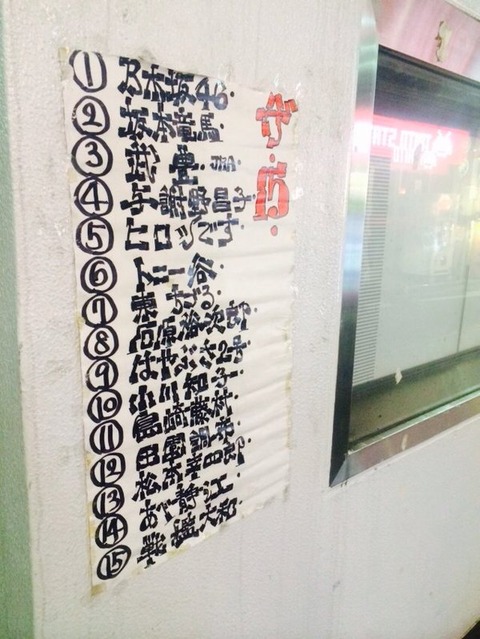 ザ・15・
① 乃木坂46・
② 坂本竜馬・
③ 武 豊・JRA・
④ 与謝野昌子・
⑤ ヒロシです・
⑥ トニー谷・
⑦ 東 ちづる・
⑧ 石原裕次郎・
⑨ はやぶさ2号
⑩ 小川知子・
⑪ 島崎藤村・
⑫ 田園調布・
⑬ 松本幸四郎・
⑭ あべ静江
⑮ 戦艦大和・